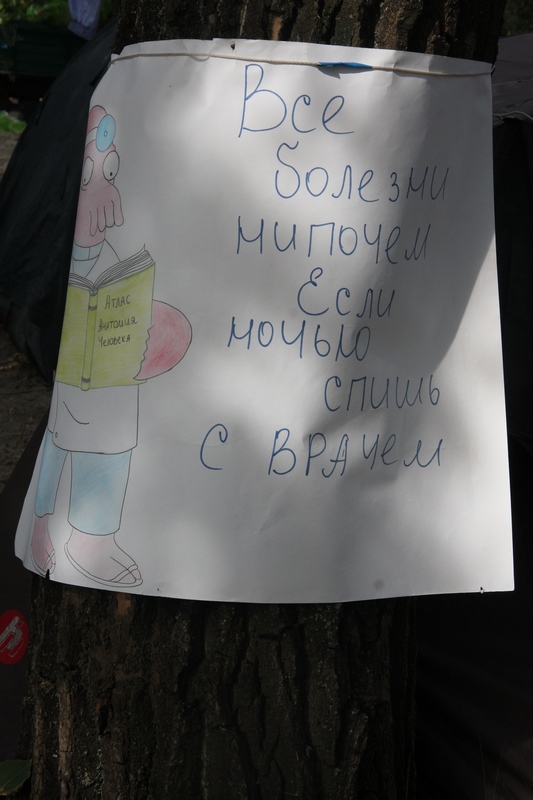 Все
болезни
нипочем
Если
ночью
спишь
с врачем
Атлас
Анатомия
Человека